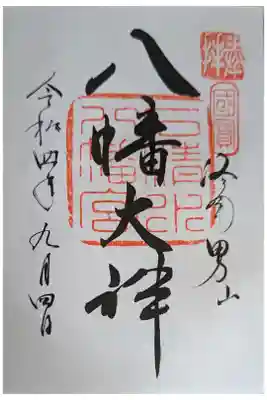 国寶
男山
八幡大神
石清水
八幡宮
令和四年九月四日